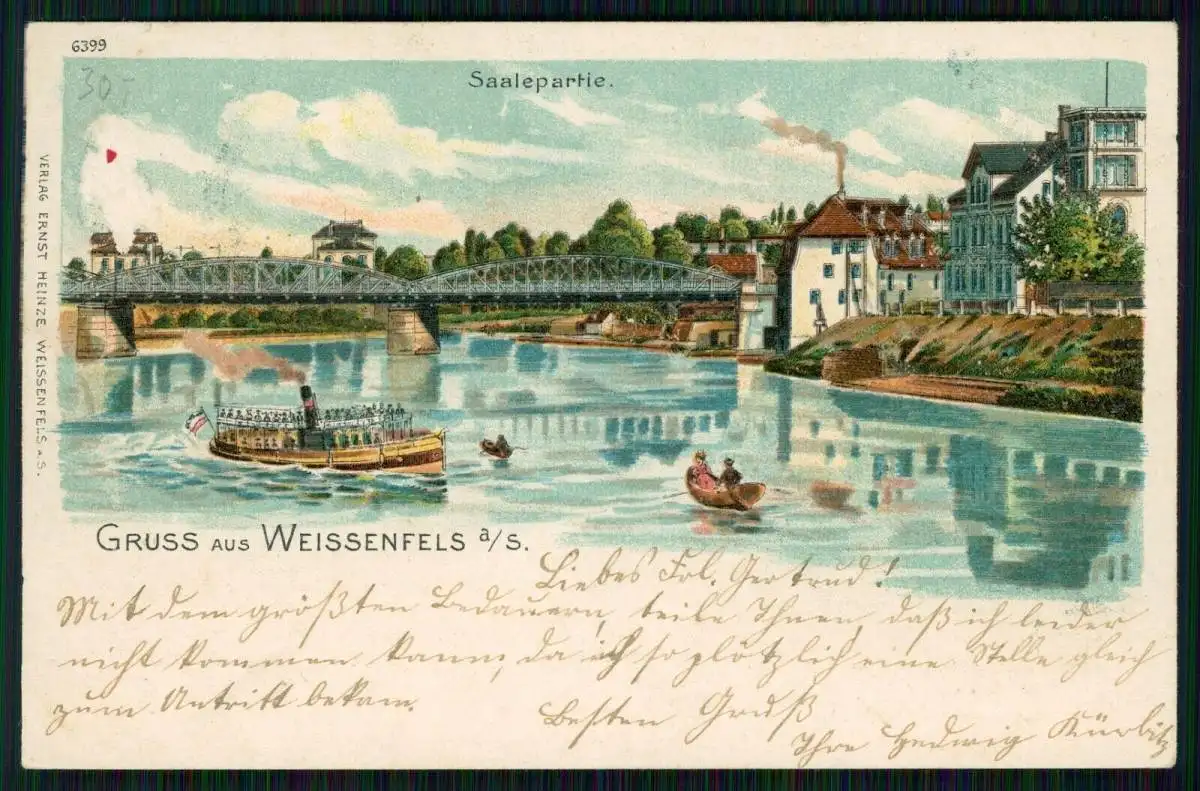 6399
30.-
Saalepartie.
VERLAG ERNST HEINZE WEISSENFELS A.S.
GRUSS AUS WEISSENFELS a/S.
Liebes Frl. Gertrud!
Mit dem größten Bedauern, teile Ihnen, daß ich leider
nicht kommen kann, da ich so plötzlich eine Stelle gleich
zum Antritt bekam.
Besten Gruß
Ihre Hedwig Kürbitz